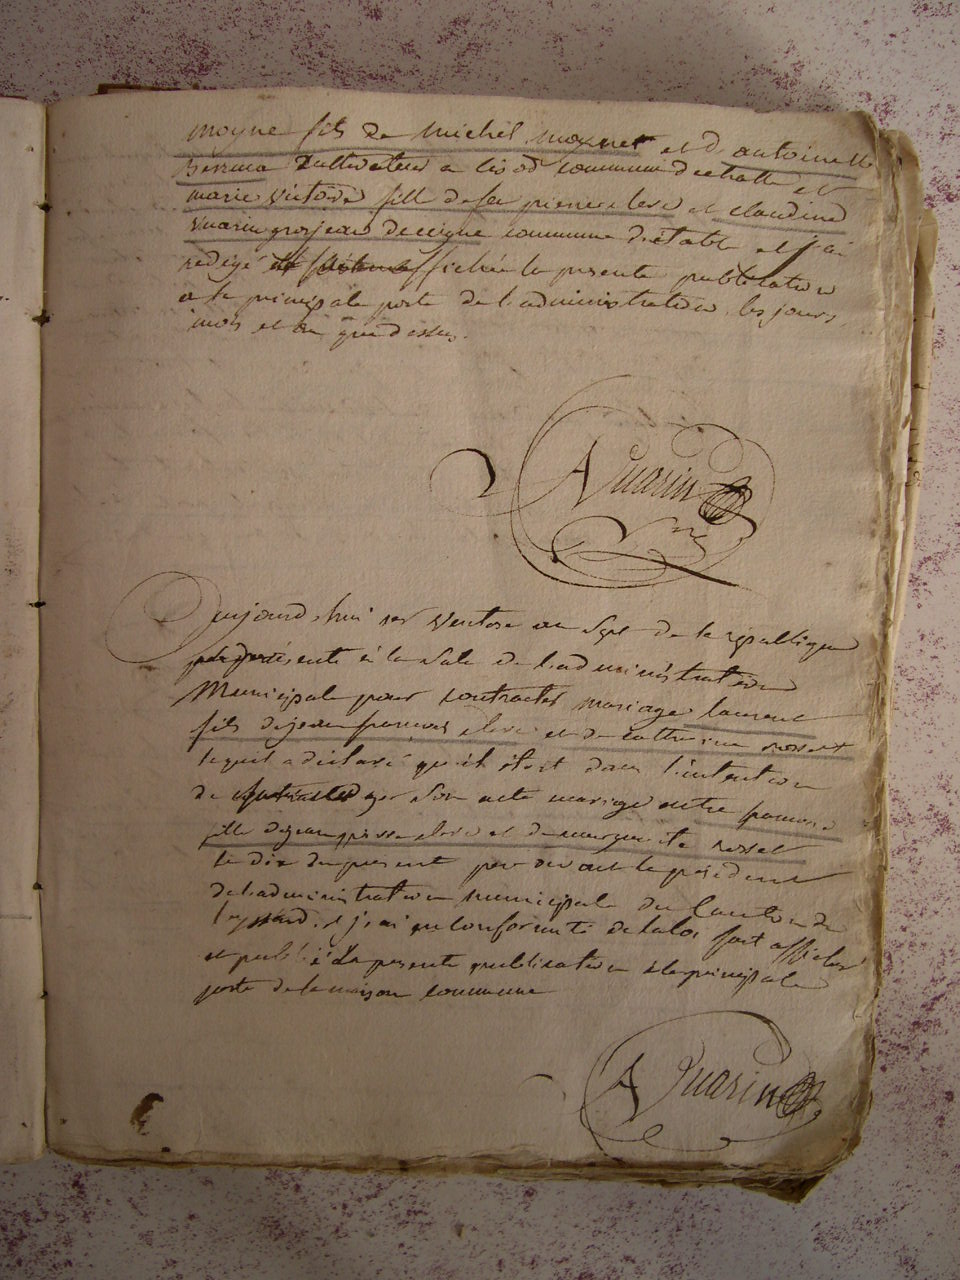 moyne fils de michel moyne et d antoinette
cultivateur a commune detable et
marie victoire fille de feu pierre clerc et claudine
Vuarin grosjean de commune d'etable et j'ai
redigé affiché la presente publication
a la principale porte de l'administration les jours
mois et an que dessus.
A Vuarin
Aujourd'hui 1er Ventose an Sept de la république
presenté à la Sale de l'administration
Municipale pour contracter mariage laurent
fils de jean françois clerc et de catherine rosset
lequel a déclaré qu'il étoit dans l'intention
de Son acte mariage entre
fille de jean pierre clerc et de marguerite rosset
le dix du present par devant le président
de l'administration municipale du Canton de
j'ai en conformité de la loi fait afficher
et publié La presente publication à la principale
porte de la maison commune
A Vuarin